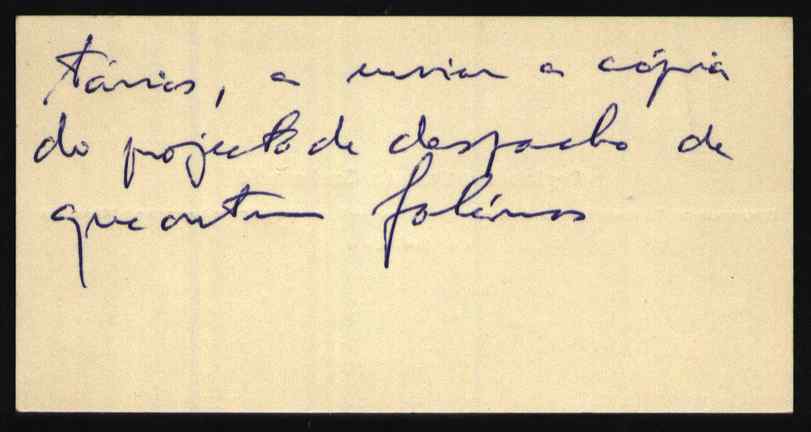 tários, a enviar a cópia
do projecto de despacho de
que ontem falámos